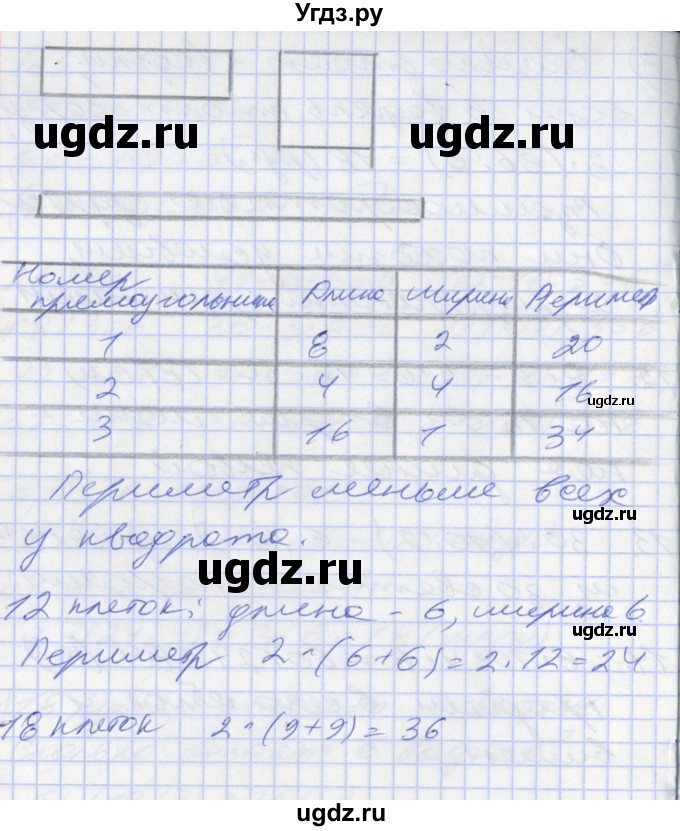 Угдз.ру
ugdz.ru ugdz.ru
Номер прямоугольника Длина Ширина Периметр
1 8 2 20
2 4 4 16
ugdz.ru
3 16 1 34
Периметр меньше всех
ugdz.ru
у квадрата.
ugdz.ru
12 клеток; длина - 6, ширина 6.
ugdz.ru
Периметр 2·(6+6)=2·12=24
18 клеток 2·(9+9)=36
ugdz.ru